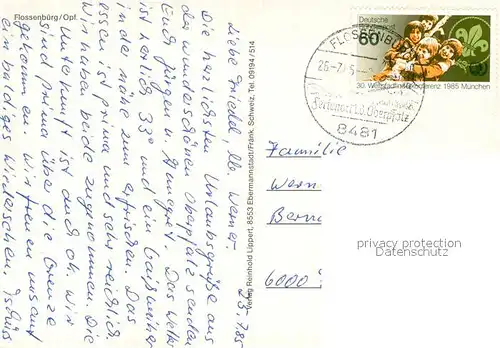 Flossenbürg/Opf.
Liebe Friedel, lb. Werner
Die herzlichsten Urlaubsgrüße aus
der wunderschönen Oberpfalz senden
Euch Jürgen u. Annegret. Das Wetter
ist herrlich 33° und ein
in der Nähe zum erfrischen. Das
Essen ist prima und sehr reichlich.
Wir haben beide zugenommen. Die
Unterkunft ist auch ok. Wir
sind prima über die Grenze
gekommen. Wir freuen uns auf
ein baldiges Wiedersehen.
23.7.85
Verlag Reinhold Lippert, 8553 Ebermannstadt/Fränk. Schweiz, Tel. 09194/514
Deutsche
60
30. Weltpfadfinderkonferenz 1985 München
FLOSSENBÜRG
8481
Familie
Wern
Berna
6000
privacy protection
Datenschutz